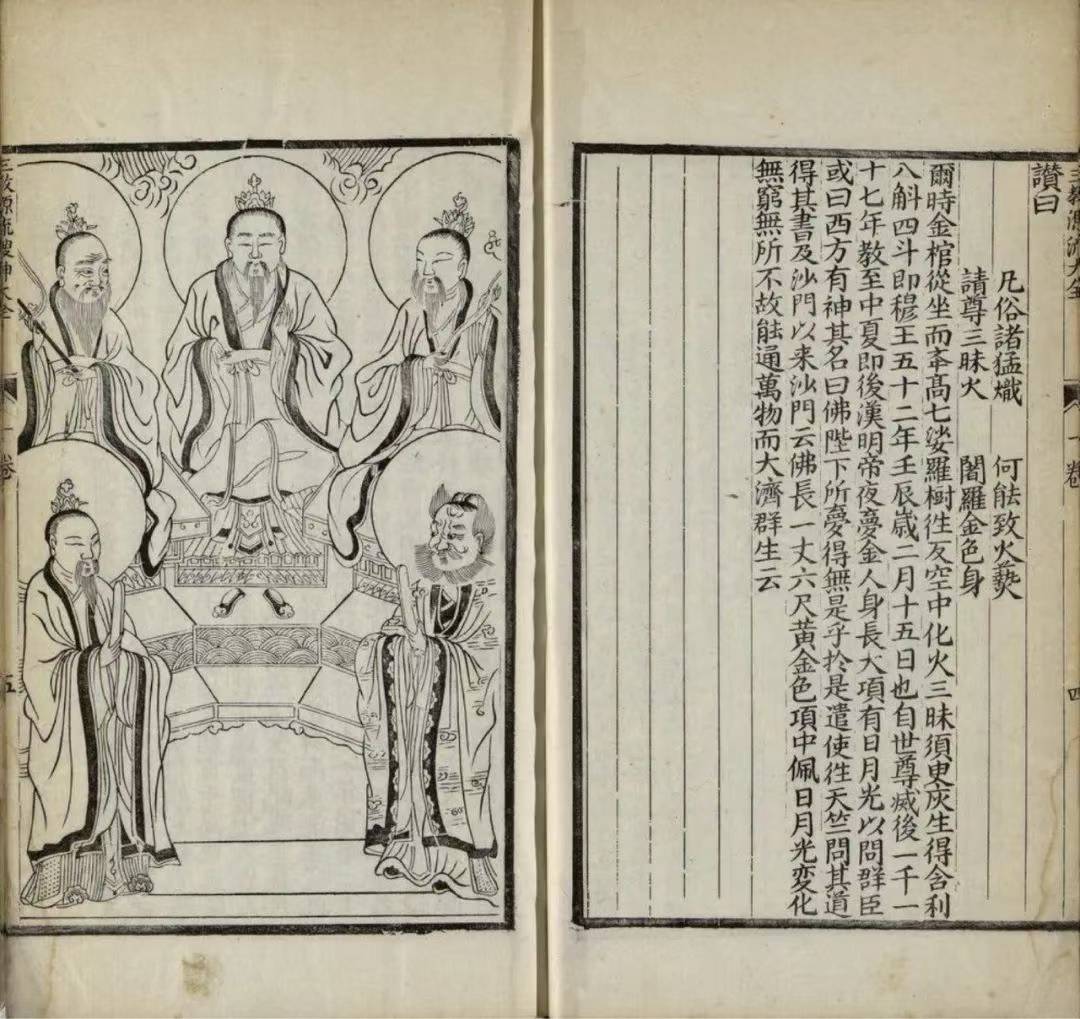 三教源流大全
一卷
四
讚曰
凡俗諸猛熾　何能致火爇
請尊三昧火　闍羅金色身
爾時金棺從坐而夲高七娑羅樹徃反空中化火三昧須臾灰生得舍利
八斛四斗即穆王五十二年壬辰嵗二月十五日也自世尊滅後一千一
十七年教至中夏即後漢明帝夜夢金人身長大項有日月光以問群臣
或曰西方有神其名曰佛陛下所夢得無是乎於是遣使徃天竺問其道
得其書及沙門以来沙門云佛長一丈六尺黃金色項中佩日月光変化
無窮無所不故能通萬物而大濟群生云
三教源流搜神大全
一卷
五